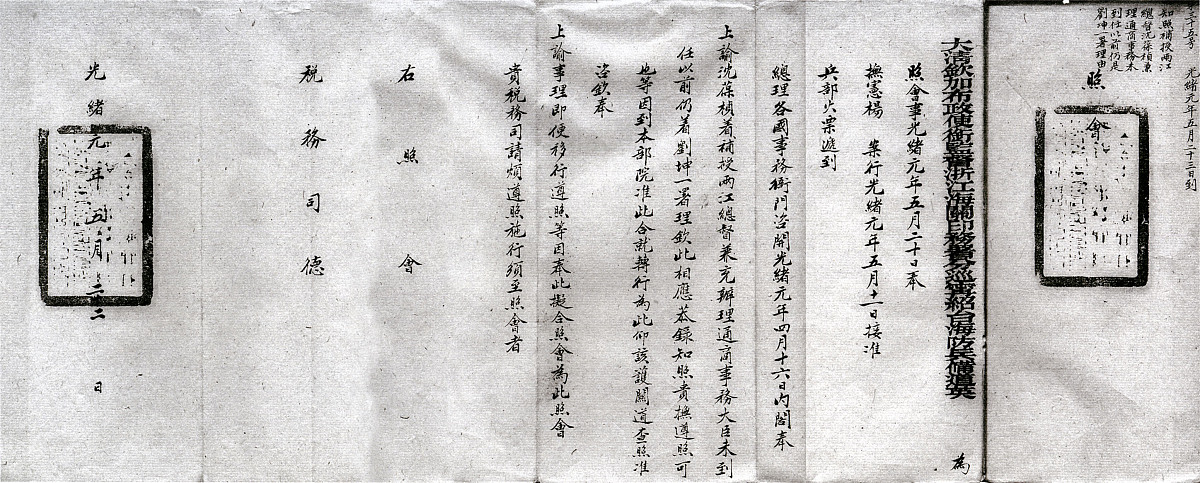 十五号
知照補授兩江
總督沈葆楨兼
理通商事務未
到任以前仍是
劉坤一署理由
光緒元年五月二十三日到
照會
大清欽加布政使銜監督浙江海關印務署分巡寧紹台海防兵備道英 為
照會事光緒元年五月二十日奉
撫憲楊 案行光緒元年五月十一日接准
兵部火票遞到
總理各國事務衙門咨開光緒元年四月十六日內閣奉
上諭沈葆楨着補授兩江總督兼充辦理通商事務大臣未到
任以前仍着劉坤一署理欽此相應恭錄知照貴撫遵照可
也等因到本部院准此合就轉行為此仰該護關道查照准
咨欽奉
上諭事理即便移行遵照等因奉此擬合照會為此照會
貴稅務司請煩遵照施行須至照會者
右照會
稅務司德
光緒元年五月二十二日